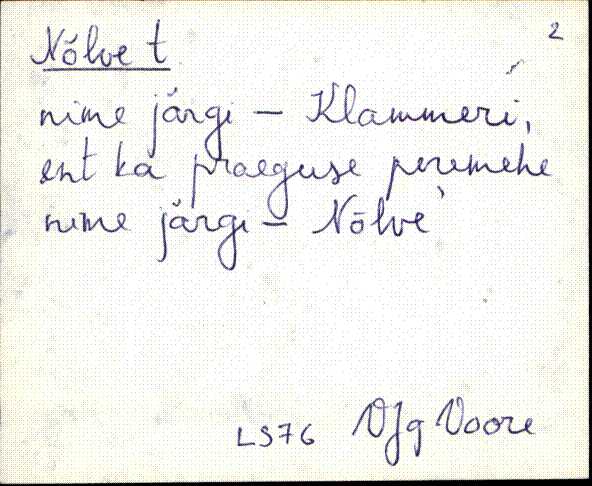 2
Nõlve t
nime järgi – Klammeri,
ent ka praeguse peremehe
nime järgi – Nõlve
LS76 VJg Voore